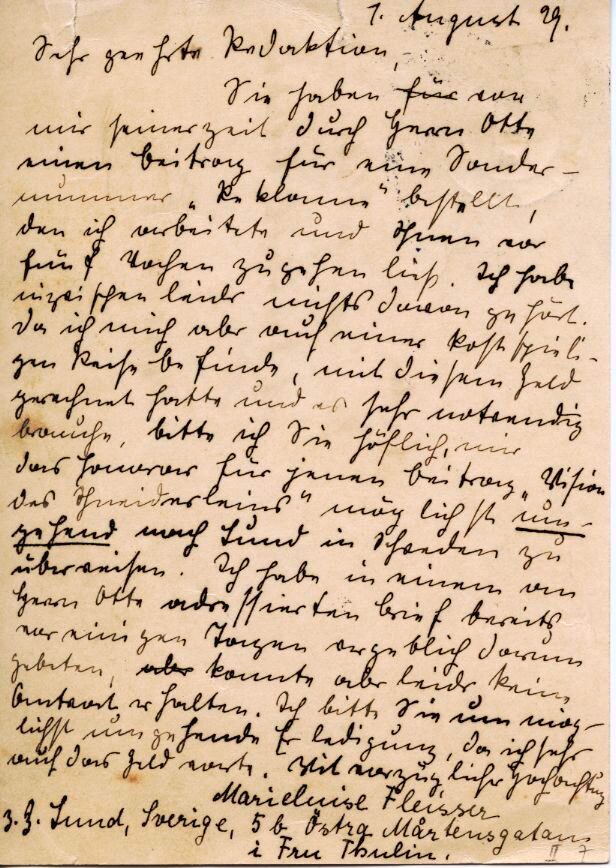 1. August 29.
Sehr geehrte Redaktion,
Sie haben für von
mir seinerzeit durch Herrn Otte
einen Beitrag für eine Sonder-
nummer „Reklame“ bestellt,
den ich arbeitete und Ihnen vor
fünf Wochen zugehen ließ. Ich habe
inzwischen leider nichts davon gehört.
Da ich mich aber auf einer kostspieli-
gen Reise befinde, mit diesem Geld
gerechnet hatte und es sehr notwendig
brauche, bitte ich Sie höflich, mir
das Honorar für jenen Beitrag „Vision
des Schneiderleins“ möglichst um-
gehend nach Lund in Schweden zu
überweisen. Ich habe in einem an
Herrn Otte adressierten Brief bereits
vor einigen Tagen vergeblich darum
gebeten, aber konnte aber leider keine
Antwort erhalten. Ich bitte Sie um mög-
lichst umgehende Erledigung, da ich sehr
auf das Geld warte. Mit vorzüglicher Hochachtung
Marieluise Fleisser
z.Z. Lund, Sverige, 5b Östra Mårtensgatan
i Fru Thulin.
II 7